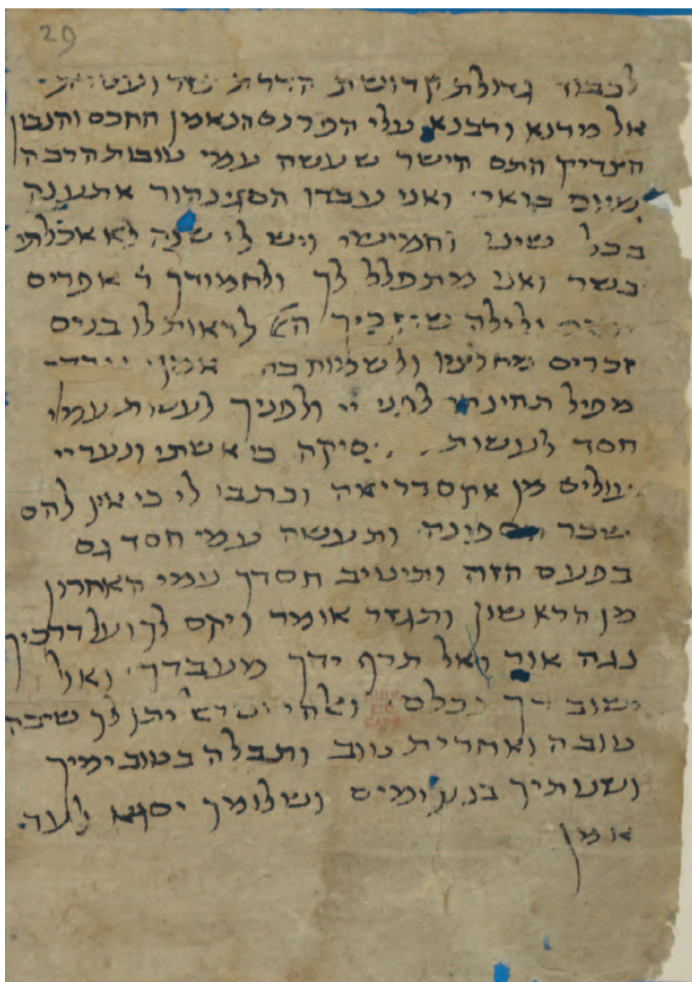 29
לכבוד גדולת קדושת הדרת
אל מרנא ורבנא עלי הפרנס הנאמן החכם והנבון
הצדיק התם הישר שעשה עמי טובות הרבה
מיום בואי ואני עבדו הסגינהור אתענה
בכל שיני וחמישי ויש לי שנה לא אכלתי
בשר ואני מתפלל לך ולחמודך ר אפרים
ולילה הק לראות לו בנים
זכרים אמן
מפיל תחינתי לפני ייי ולפניך לעשות עמי
חסד לעשות כי אשתי ונעריי
מן וכתבו לי כי אין להם
שכר ספינה ותעשה עמי חסד גם
בפעם הזה ותיטיב חסדך עמי האחרון
מן הראשון ותגזר אומר ויקם לך ועל דרכיך
נגה אור ואל תרף ידך מעבדך ואני
יתן לך שיבה
טובה ואחרית טוב ותבלה בטוב ימיך
ושנותיך בנעימים ושלומך יסגא לעד
אמן